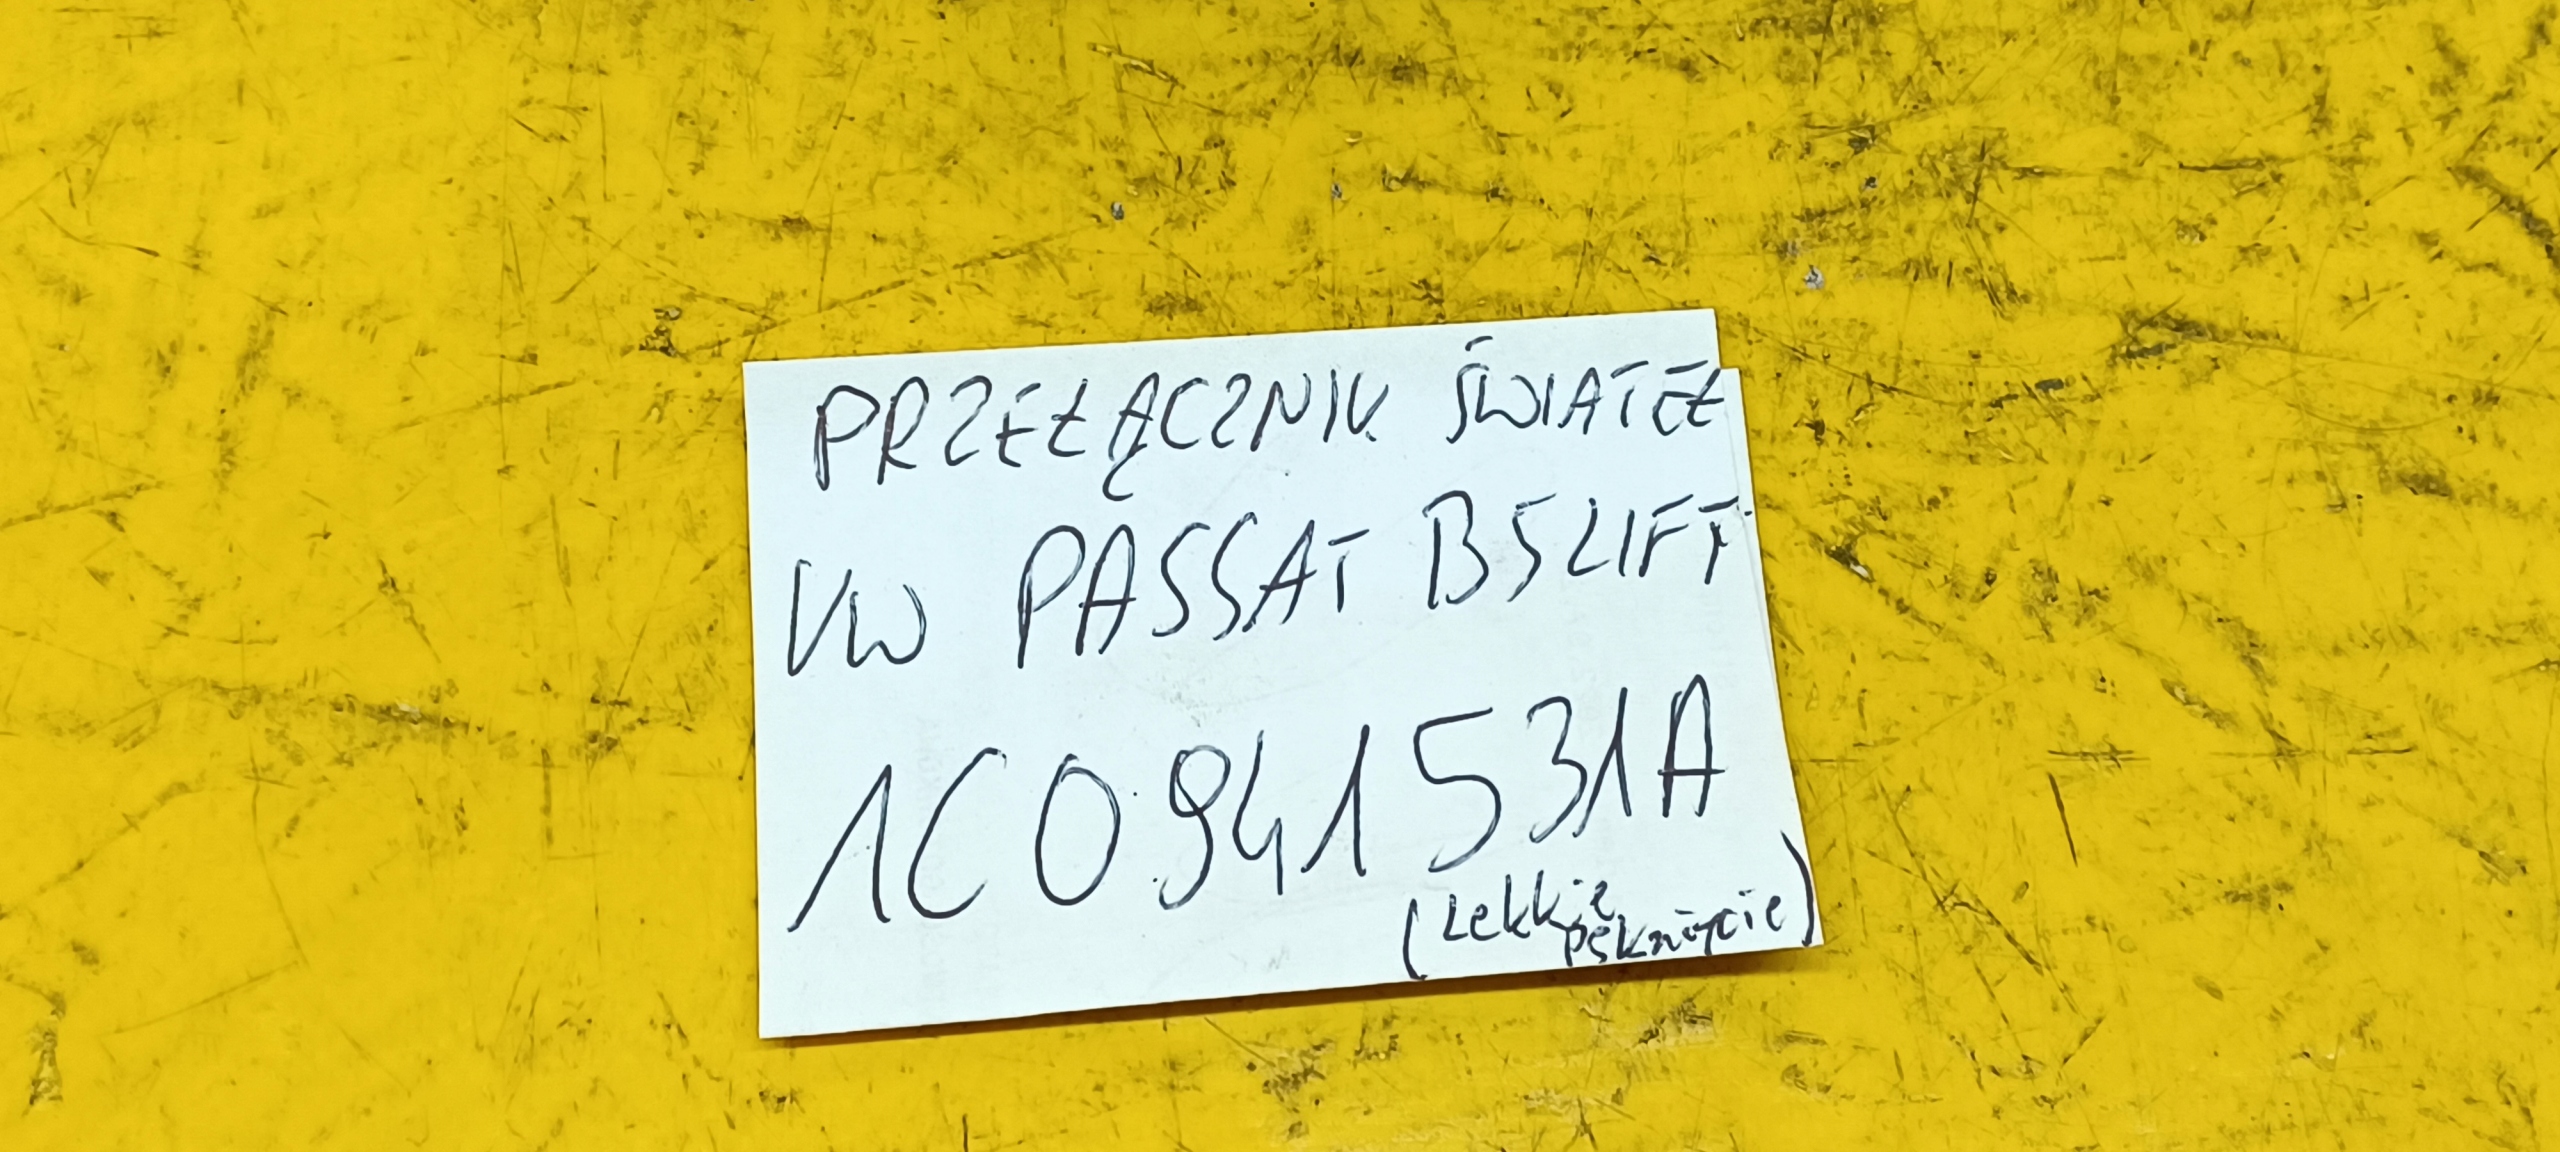 PRZEŁĄCZNIK ŚWIATEŁ
VW PASSAT B5 LIFT
1C0941531A
(Lekkie
pęknięcie)